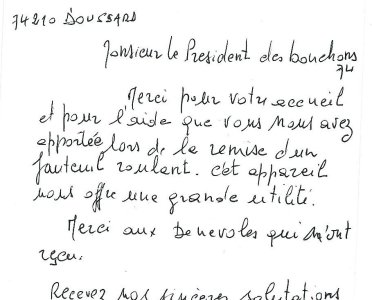 74210 DOUSSARD
Monsieur le President des bouchons
74
Merci pour votre accueil
et pour l'aide que vous nous avez
apportée lors de la remise d'un
fauteuil roulant. cet appareil
nous offre une grande utilité.
Merci aux Benevoles qui m'ont
reçu.
Recevez nos sincères salutations